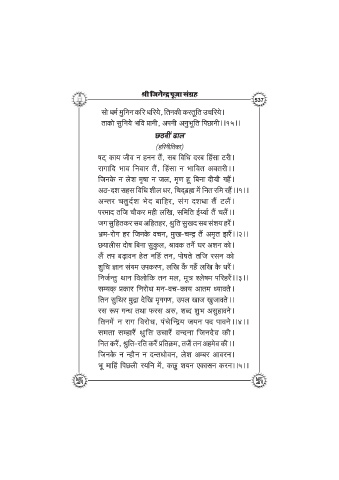 श्री जिनेन्द्र पूजा संग्रह
537
सो धर्म मुनिन करि धरिये, तिनकी करतूति उचरिये।
ताको सुनिये भवि प्रानी, अपनी अनुभूति पिछानी।।१५।।
छठवीं ढाल
(हरिगीतिका)
षट् काय जीव न हनन तैं, सब विधि दरब हिंसा टरी।
रागादि भाव निवार तैं, हिंसा न भावित अवतरी।।
जिनके न लेश मृषा न जल, मृण हू बिना दीयौ गहैं।
अठ-दश सहस विधि शील धर, चिद्ब्रह्म में नित रमि रहैं।।१।।
अन्तर चतुर्दश भेद बाहिर, संग दशधा तैं टलैं।
परमाद तजि चौकर मही लखि, समिति ईर्या तैं चलैं।।
जग सुहितकर सब अहितहर, श्रुति सुखद सब संशय हरैं।
भ्रम-रोग हर जिनके वचन, मुख-चन्द्र तैं अमृत झरैं।।२।।
छयालीस दोष बिना सुकुल, श्रावक तनैं घर अशन को।
लैं तप बढ़ावन हेत नहिं तन, पोषते तजि रसन को
शुचि ज्ञान संयम उपकरण, लखि कैं गहैं लखि कै धरैं।
निर्जन्तु थान विलोकि तन मल, मूत्र श्लेषम परिहरैं।।३।।
सम्यक् प्रकार निरोध मन-वच-काय आतम ध्यावते।
तिन सुथिर मुद्रा देखि मृगगण, उपल खाज खुजावते।।
रस रूप गन्ध तथा फरस अरु, शब्द शुभ असुहावने।
तिनमें न राग विरोध, पंचेन्द्रिय जयन पद पावने।।४।।
समता सम्हारैं थुति उचारैं वन्दना जिनदेव की।
नित करैं, श्रुति-रति करैं प्रतिक्रम, तजैं तन अहमेव की।।
जिनके न न्हौन न दन्तधोवन, लेश अम्बर आवरन।
भू माहिं पिछली रयनि में, कछु शयन एकासन करन।।५।।